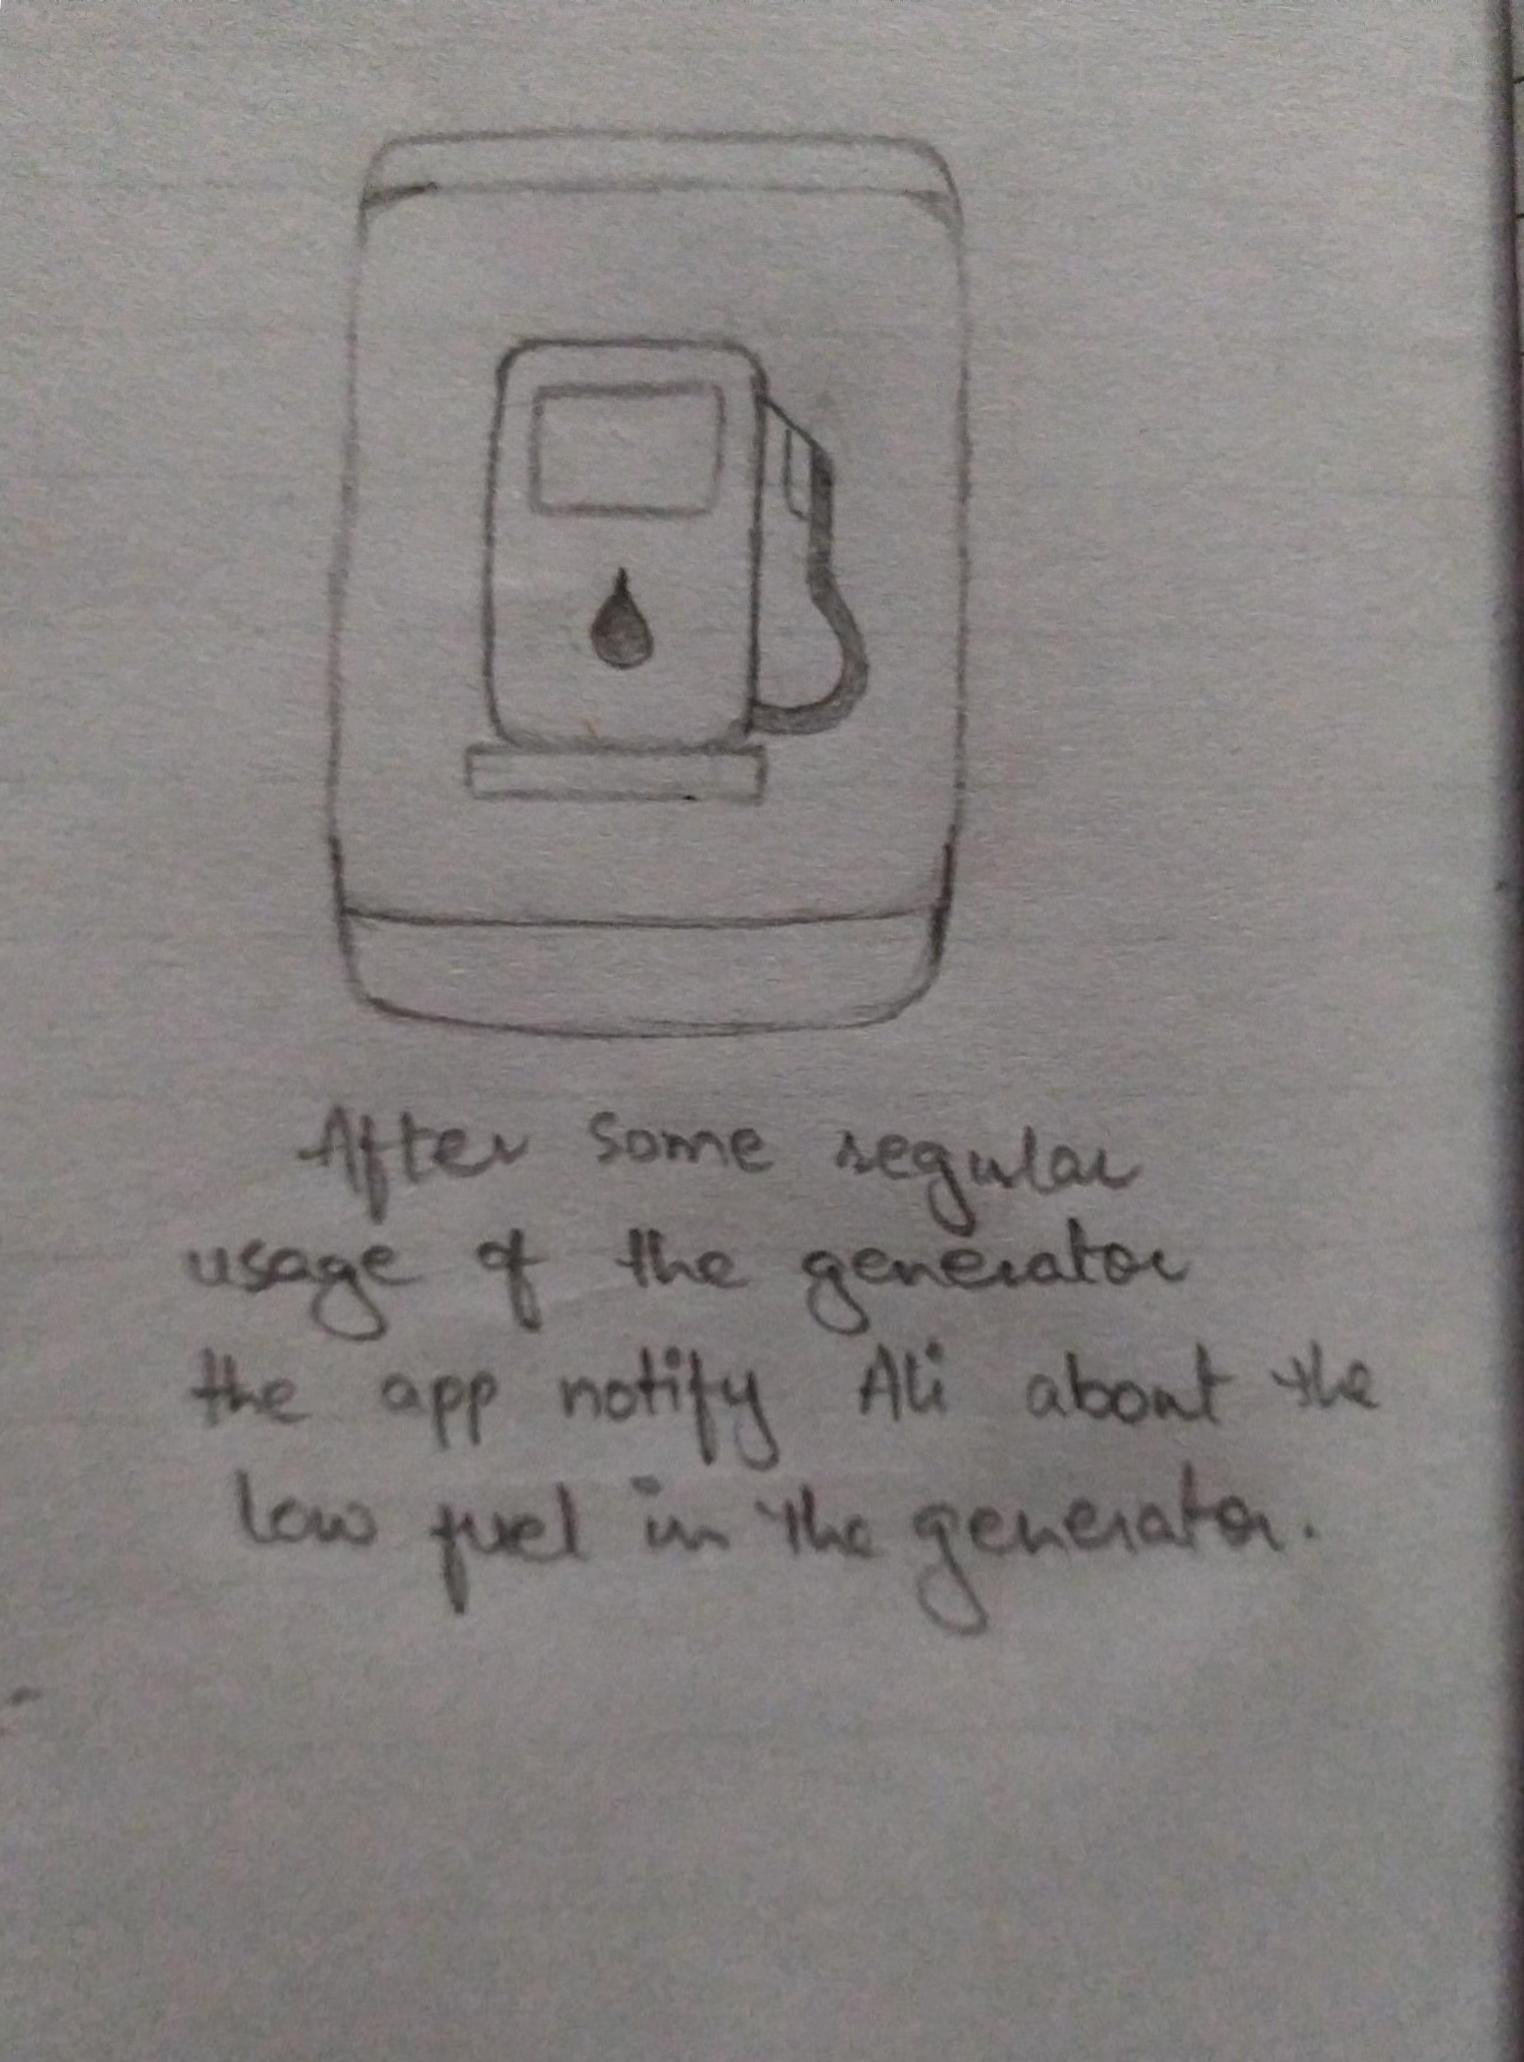 After some regular
usage of the generator
the app notify Ali about the
low fuel in the generator.